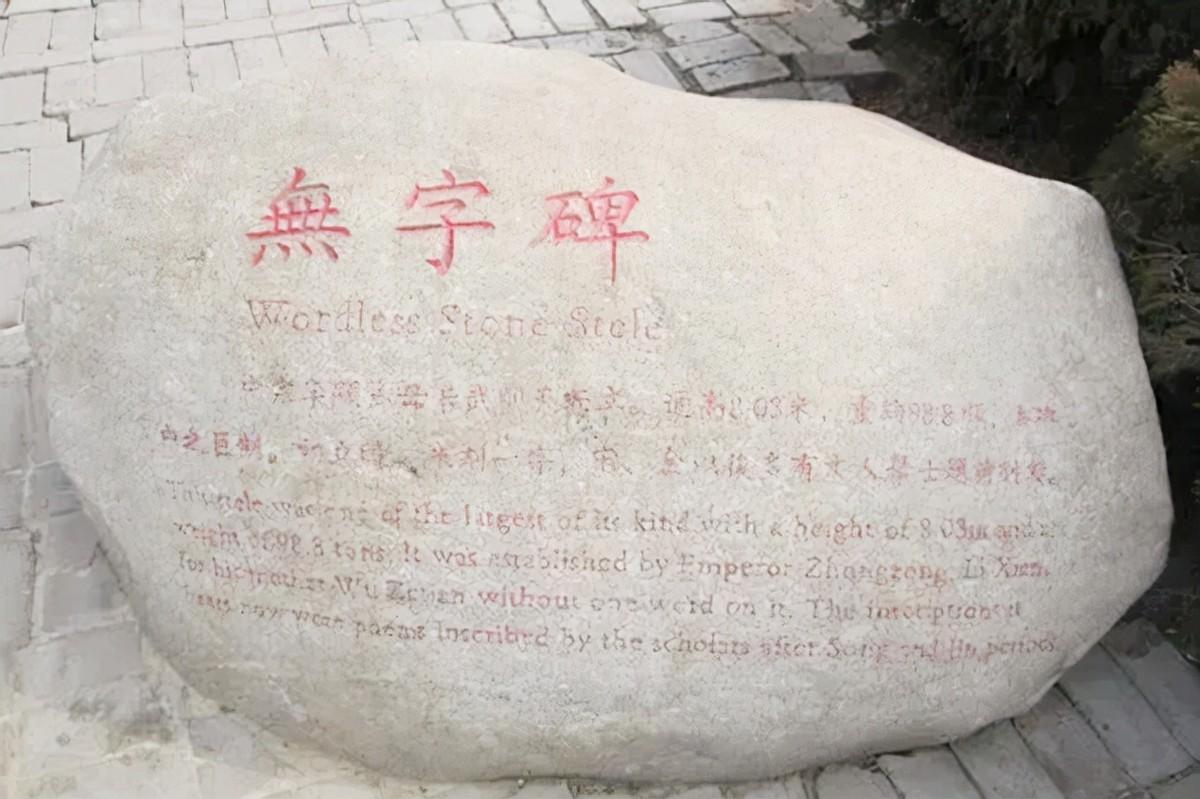 無字碑
Wordless Stone Stele
中宗李顯為母后武則天所立。通高8.03米，重約98.8噸，
之巨制。初立時，未刻一字，宋、金以後多有文人學士題詩刻
stele was one of the largest of its kind with a height of 8.03m and a
weight of 98.8 tons. It was established by Emperor Zhangzong, Li Xian,
for his mother Wu Zetian without one word on it. The
now were poems inscribed by the scholars after Song and Jin periods.